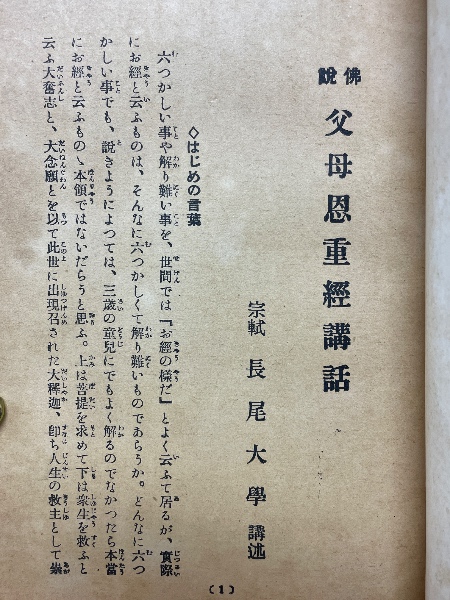 佛說 父母恩重經講話
宗弌 長尾大學 講述
◇はじめの言葉
六つかしい事や解り難い事を、世間では『お經の樣だ』とよく云ふて居るが、實際
にお經と云ふものは、そんなに六つかしくて解り難いものであらうか。どんなに六つ
かしい事でも、説きようによつては、三歳の童兒にでもよく解るのでなかつたら本當
にお經と云ふものゝ本領ではないだらうと思ふ。上は菩提を求めて下は衆生を救ふと
云ふ大奮志と、大念願とを以て此世に出現召された大釋迦、卽ち人生の救主として崇
(1)